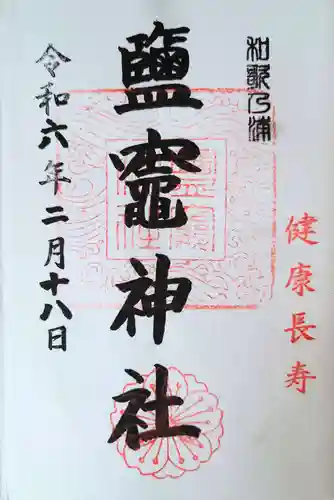 健康長寿
和歌乃浦
鹽竈神社
令和六年二月十八日